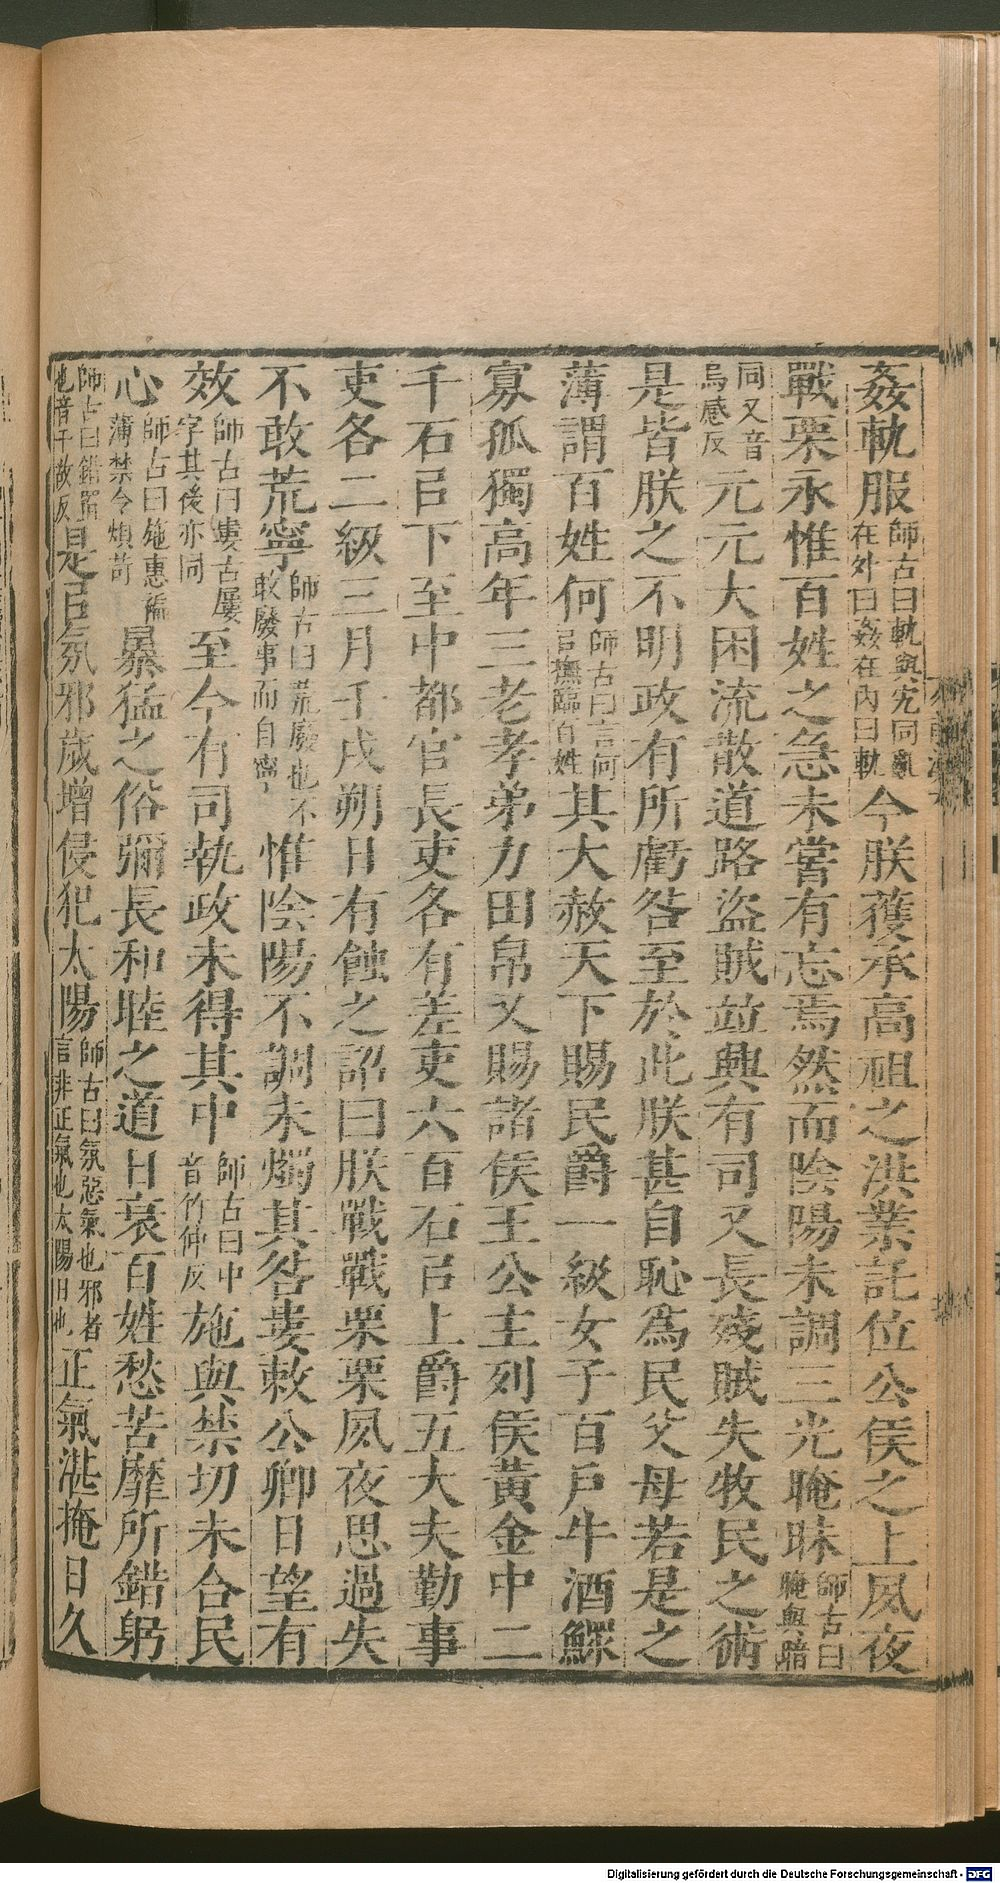 姦軌服師古曰軌與宄同亂在外曰姦在內曰軌今朕獲承高祖之洪業託位公侯之上夙夜
戰栗永惟百姓之急未嘗有忘焉然而陰陽未調三光晻昧師古曰晻與暗
同又音烏感反元元大困流散道路盜賊並興有司又長殘賊失牧民之術
是皆朕之不明政有所虧咎至於此朕甚自恥為民父母若是之
薄謂百姓何師古曰言何㠯撫臨百姓其大赦天下賜民爵一級女子百戶牛酒鰥
寡孤獨高年三老孝弟力田帛又賜諸侯王公主列侯黃金中二
千石㠯下至中都官長吏各有差吏六百石㠯上爵五大夫勤事
吏各二級三月壬戌朔日有蝕之詔曰朕戰戰栗栗夙夜思過失
不敢荒寧師古曰荒廢也不敢廢事而自寧惟陰陽不調未燭其咎婁敕公卿日望有
效師古曰婁古屢字其後亦同至今有司執政未得其中師古曰中音竹仲反施與禁切未合民
心師古曰施惠褊薄禁令煩苛暴猛之俗彌長和睦之道日衰百姓愁苦靡所錯躬
師古曰錯置也音千故反是㠯氛邪歲增侵犯太陽師古曰氛惡氣也邪者言非正氣也太陽日也正氣湛掩日久
Digitalisierung gefördert durch die Deutsche Forschungsgemeinschaft - DFG